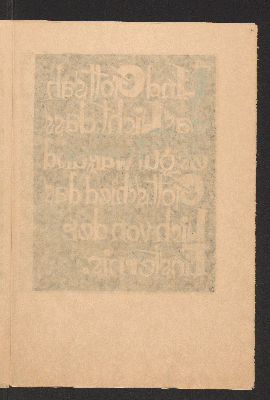 Und Gott sah
das Licht dass
es gut war und
Gott schied das
Licht von der
Finsternis.